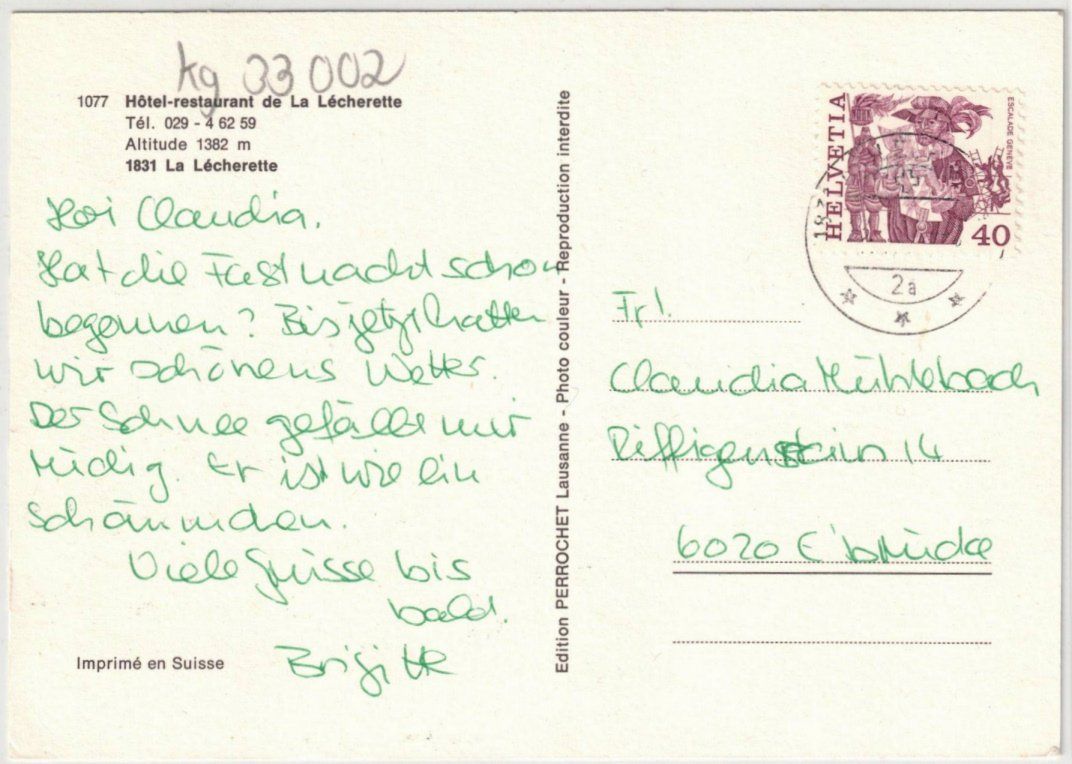 kg 33 002
1077 Hôtel-restaurant de La Lécherette
Tél. 029 - 4 62 59
Altitude 1382 m
1831 La Lécherette
Hoi Claudia.
Hat die Fastnacht schon
begonnen? Bis jetzt hatten
wir schönens Wetter.
Der Schnee gefällt mir
rüdig. Er ist wie ein
schäumchen.
Viele Grüsse bis
bald.
Brigitte
Imprimé en Suisse
Edition PERROCHET Lausanne - Photo couleur - Reproduction interdite
HELVETIA
ESCALADE GENÈVE
40
2a
Frl.
Claudia Mühlebach
Riffigenstein 14
6020 E'brücke